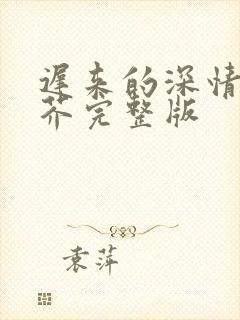 遲来的深情
芥完整版
袁萍